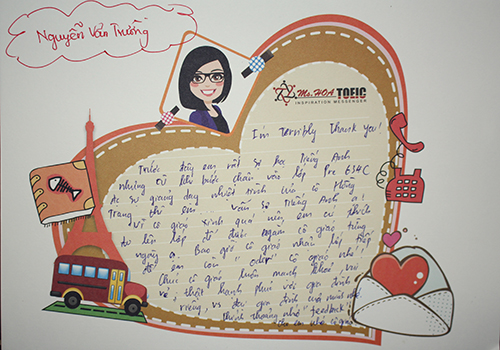 Nguyễn Văn Trường
Ms.HOA TOEIC
INSPIRATION MESSENGER
I'm Terribly Thank you!
Trước đây em rất sợ học Tiếng Anh
nhưng từ khi bước chân vào lớp Pre 634C
được sự giảng dạy nhiệt tình của cô Hồng
Trang thì em vẫn sợ Tiếng Anh ạ!
Vì cô giáo xinh quá nên em cứ thích
đến lớp để được ngắm cô giáo từng
ngày ạ. Bao giờ cô giáo nhận lớp tiếp
để em còn order cô giáo nhé!
Chúc cô giáo luôn mạnh khỏe, vui
vẻ, thật hạnh phúc với gia đình
riêng và đại gia đình của mình nhé.
thỉnh thoảng nhớ "feedback"
cho em nhé cô giáo